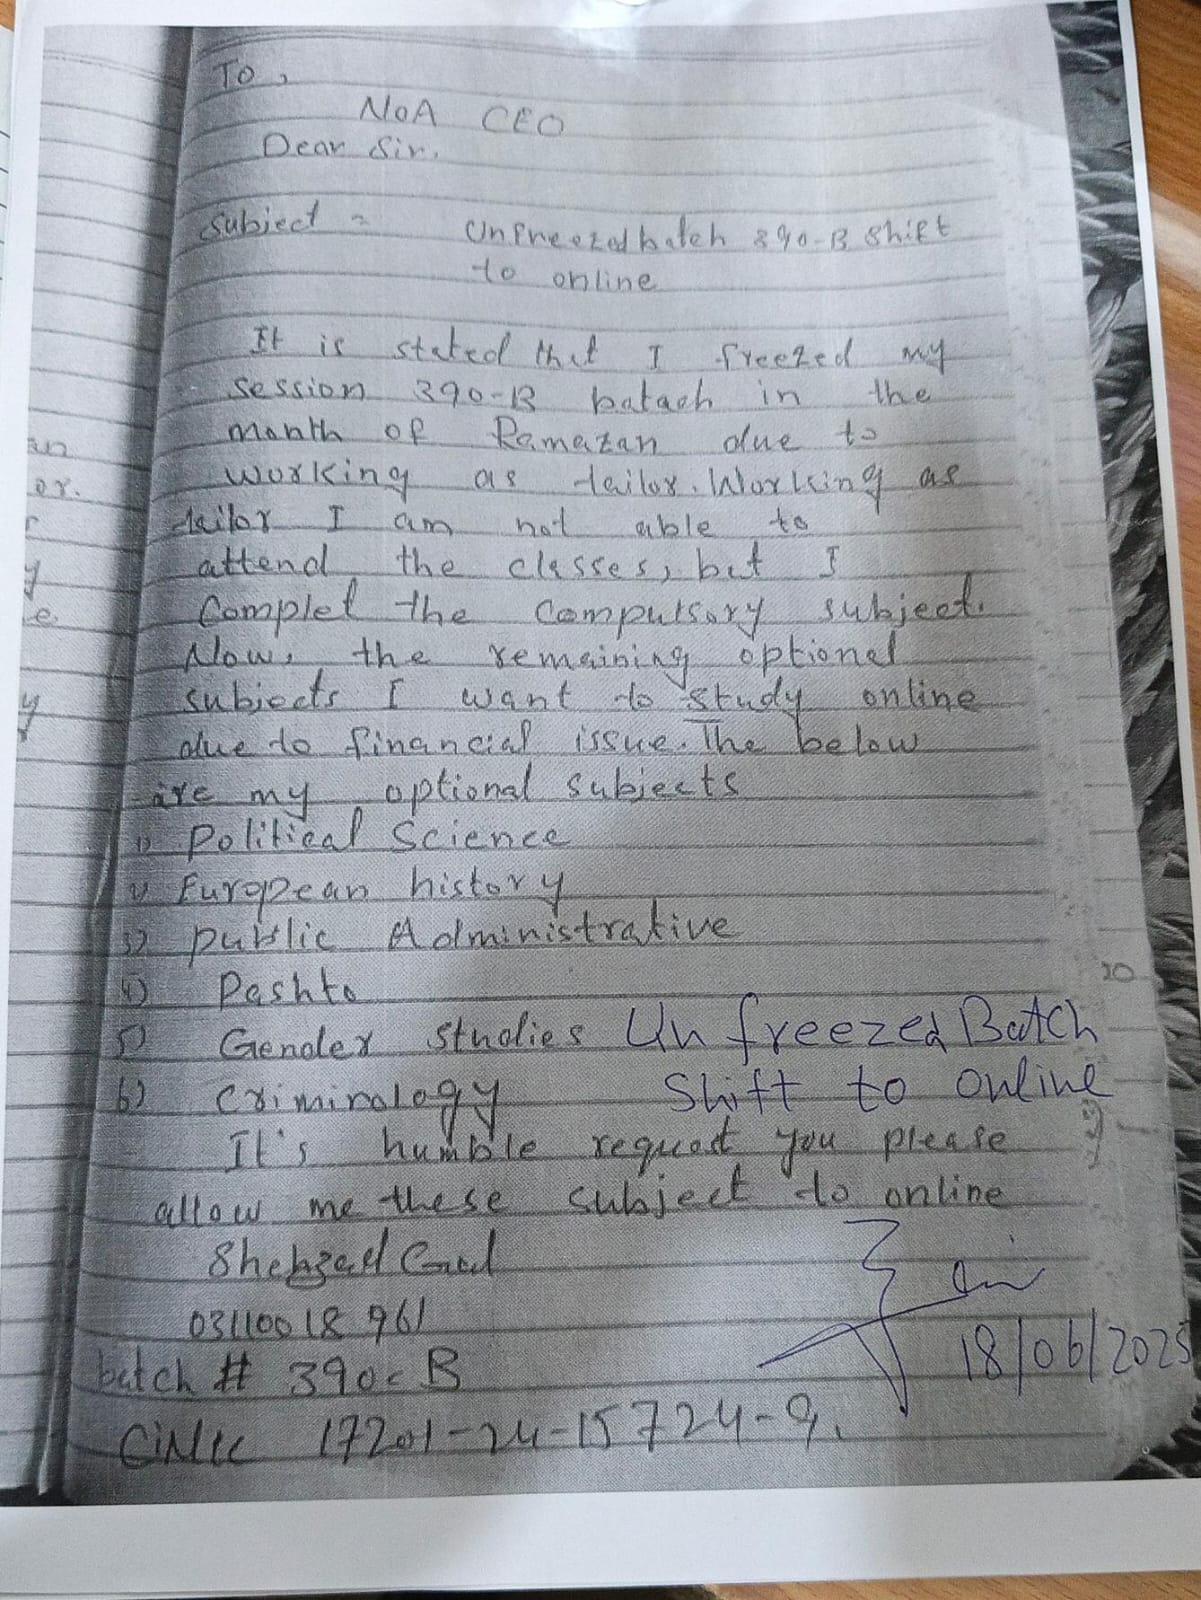 To,
NOA CEO
Dear Sir.
Subject = Unfreezed batch 390-B Shift
to online
It is stated that I freezed my
session 390-B batach in the
month of Ramazan due to
working as tailor. Working as
tailor I am not able to
attend the classes, but I
Complet the Compulsory subject.
Now, the remaining optional
subjects I want to study online
due to financial issue. The below
are my optional subjects
1) Political Science
2) European history
3) public Administrative
4) Pashto
5) Gender studies
Unfreezed Batch
6) Criminology
Shift to online
It's humble request you please
allow me these subject to online
Shehzad Gul
03110018961
18/06/2025
batch # 390-B
CiNic 17201-24-15724-9.
an
or.
r
y
e.
y